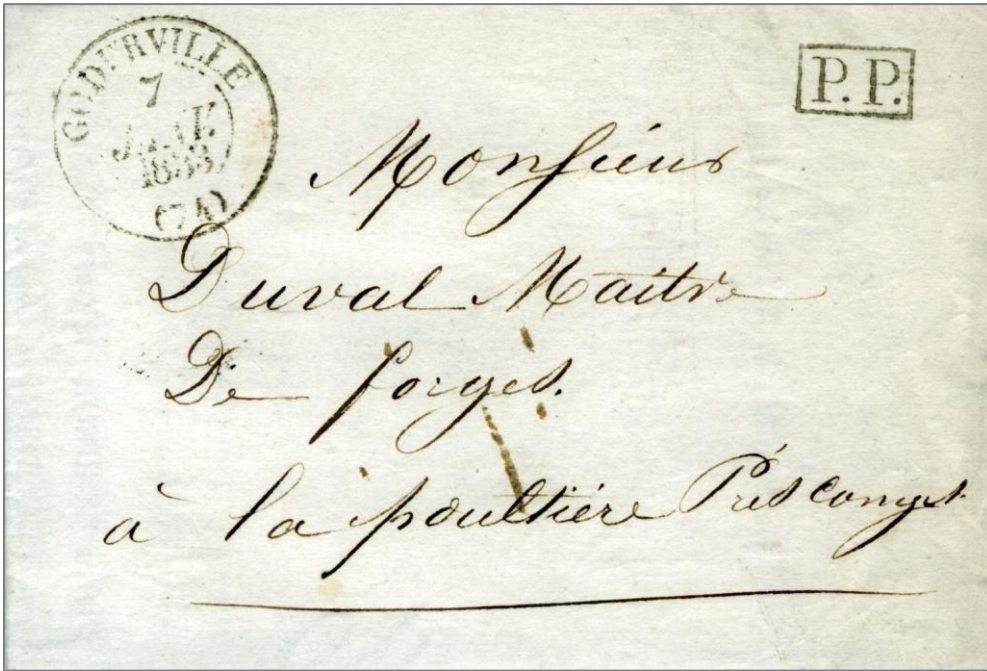 GODERVILLE
7
JANV.
(74)
P.P.
Monsieur
Duval Maitre
De forges.
à la poultière Près Conges